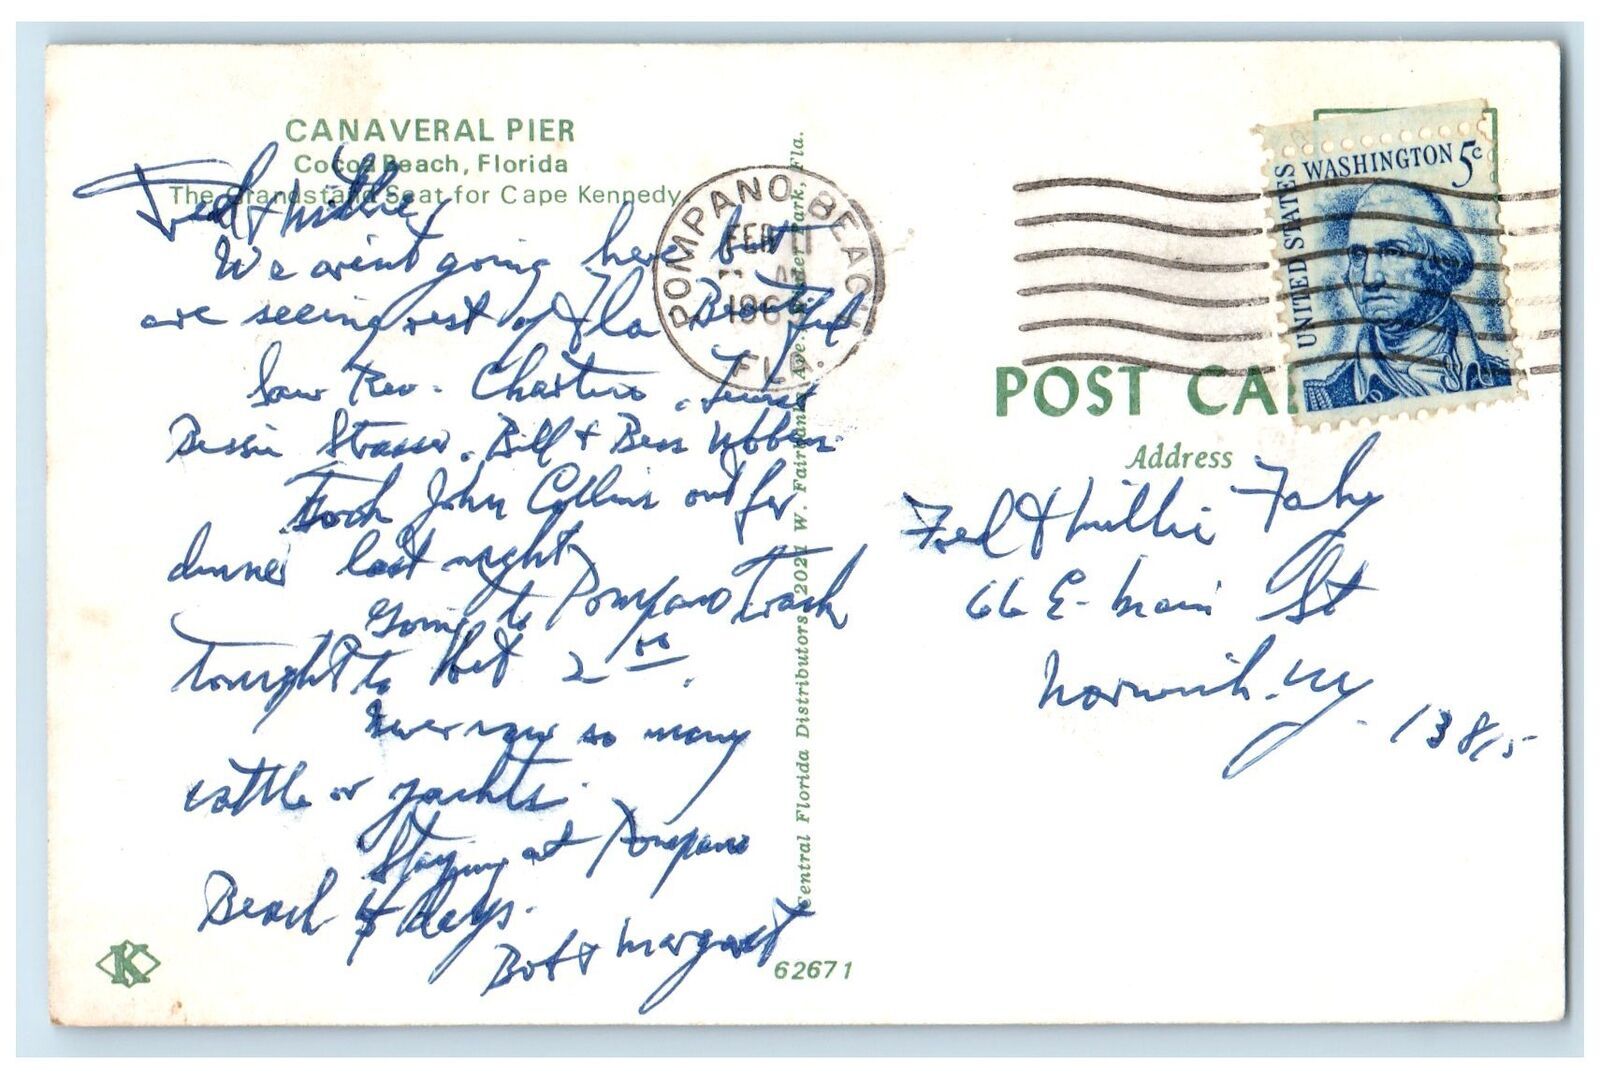 CANAVERAL PIER
Cocoa Beach, Florida
The Grandstand Seat for Cape Kennedy
Fred & Millie,
We arent going here but
are seeing rest of Fla Beautiful
Saw Rev.
Bessie Strasser. Bill & Bess
Took John Collins out for
dinner last night
Going to Pompano Track
tonight to bet 2 00.
Never saw so many
cattle or yachts.
Staying at Pompano
Beach 4 days.
Bob & Margaret
K
62671
Central Florida Distributors, 2021 W. Fairbanks Ave. Park, Fla.
POMPANO BEACH
FEB
196
FLA.
UNITED STATES
WASHINGTON 5c
POST CA
Address
Fred & Millie Fahy
66 E. Main St
Norwich. NY.
13815